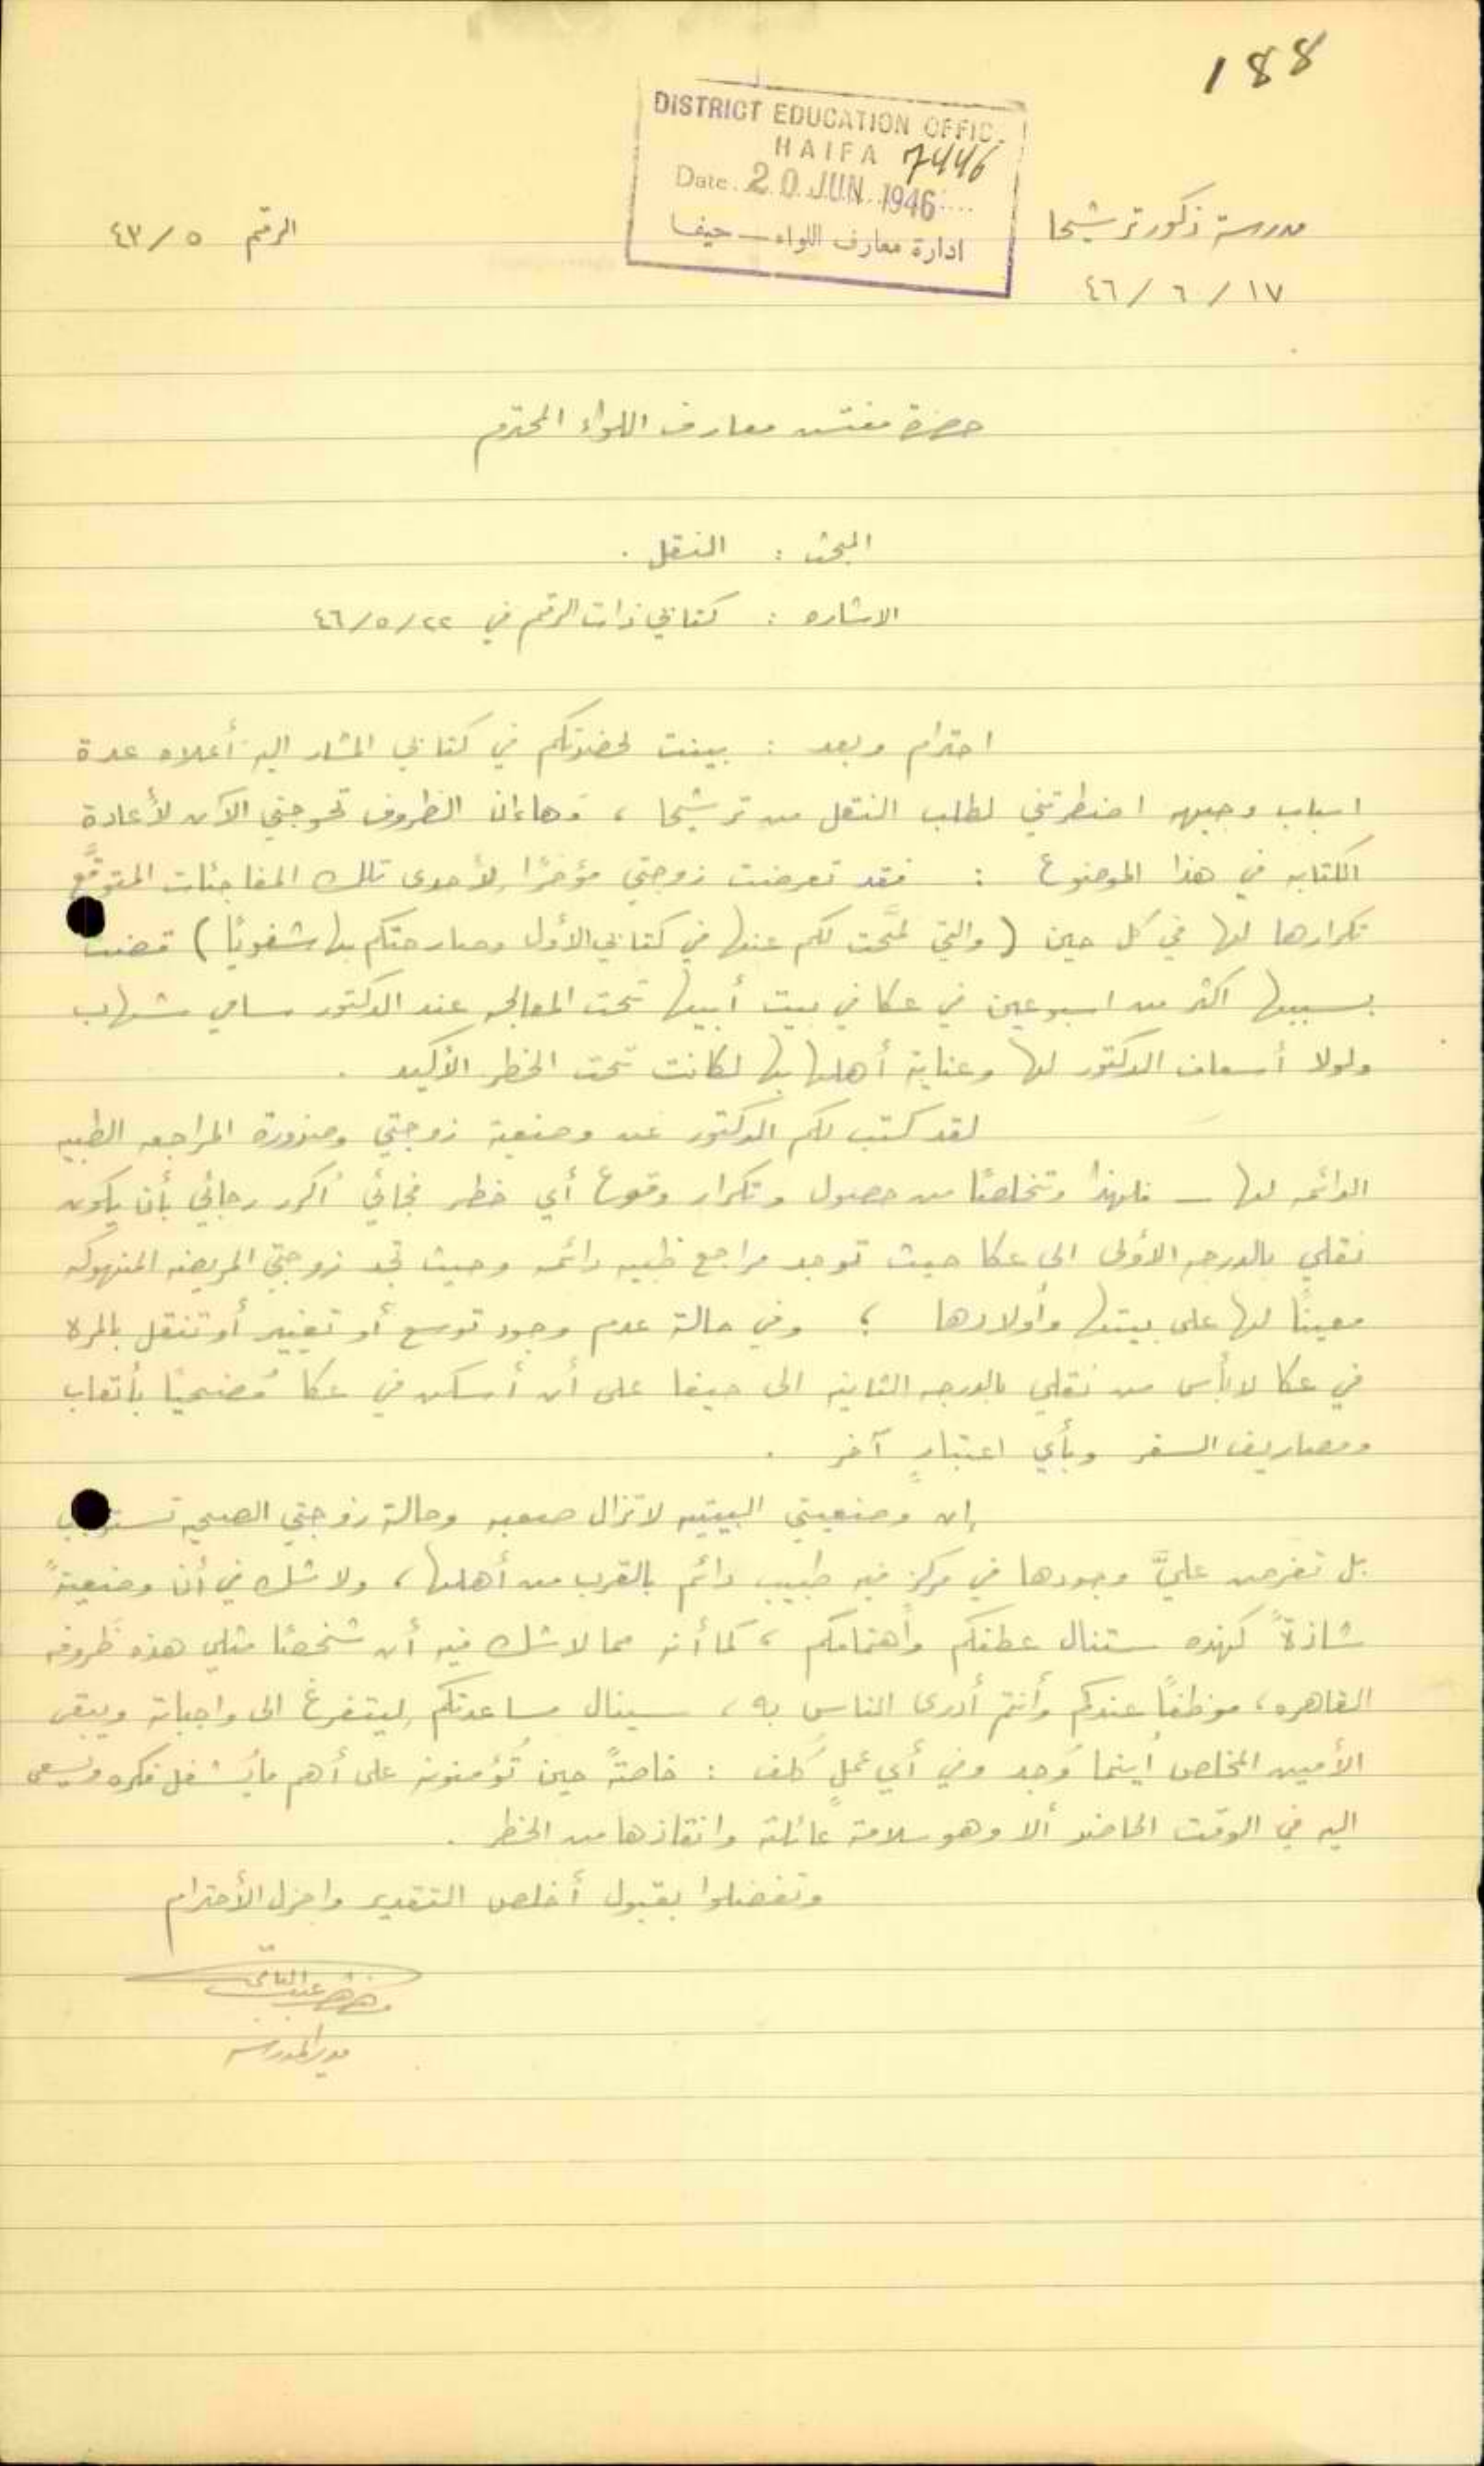 188
DISTRICT EDUCATION OFFIC.
HAIFA 7446
Date. 20 JUN 1946
ادارة معارف اللواء - حيفا
مدرسة ذكور ترشيحا
الرقم ٤٣/٥
٤٦/٦/١٧
حضرة مفتش معارف اللواء المحترم
المبحث : النقل .
الاشاره : كتابي ذات الرقم في ٤٦/٥/٢٢
احترام وبعد : بينت لحضرتكم في كتابي المشار اليه أعلاه عدة
اسباب وجيهه اضطرتني لطلب النقل من ترشيحا ، وها ان الظروف تحوجني الآن لأعادة
الكتابه في هذا الموضوع : فقد تعرضت زوجتي مؤخرًا لأحدى تلك المفاجئات المتوقَّع
تكرارها لها في كل حين ( والتي لمَّحت لكم عنها في كتابي الأول وصارحتكم بها شفويًا ) قضت
بسببها اكثر من اسبوعين في عكا في بيت أبيها تحت المعالجه عند الدكتور سامي شهاب
ولولا أسعاف الدكتور لها وعناية أهلها بها لكانت تحت الخطر الأكيد .
لقد كتب لكم الدكتور عن وضعية زوجتي وضرورة المراجعه الطبيه
الدائمه لها - فلهذا وتخلصًا من حصول وتكرار وقوع أي خطر فجائي أكرر رجائي بأن يكون
نقلي بالدرجه الأولى الى عكا حيث توجد مراجع طبيه دائمه وحيث تجد زوجتي المريضه المنهوكه
معينًا لها على بيتها وأولادها ؛ وفي حالة عدم وجود توسع أو تغيير أو تنقل بالمره
في عكا لا بأس من نقلي بالدرجه الثانيه الى حيفا على أن أسكن في عكا مُضحيًا بأتعاب
ومصاريف السفر وبأي اعتبارٍ آخر .
إن وضعيتي البيتيه لا تزال صعبه وحالة زوجتي الصحيه تستوجب
بل تفرض عليَّ وجودها في مركز فيه طبيب دائم بالقرب من أهلها ، ولا شك في أن وضعيةً
شاذةً كهذه ستنال عطفكم وأهتمامكم ، كما أنه مما لا شك فيه أن شخصًا مثلي هذه ظروفه
القاهره ، موظفًا عندكم وأنتم أدرى الناس به ، سينال مساعدتكم ليتفرغ الى واجباته ويبقى
الأمين المخلص أينما وُجد وفي أي عملٍ كُلف : خاصةً حين تُؤمنونه على أهم ما يُشغل فكره ويسعى
اليه في الوقت الحاضر ألا وهو سلامة عائلته وانقاذها من الخطر .
وتفضلوا بقبول أخلص التقدير واجزل الأحترام
مدير المدرسه